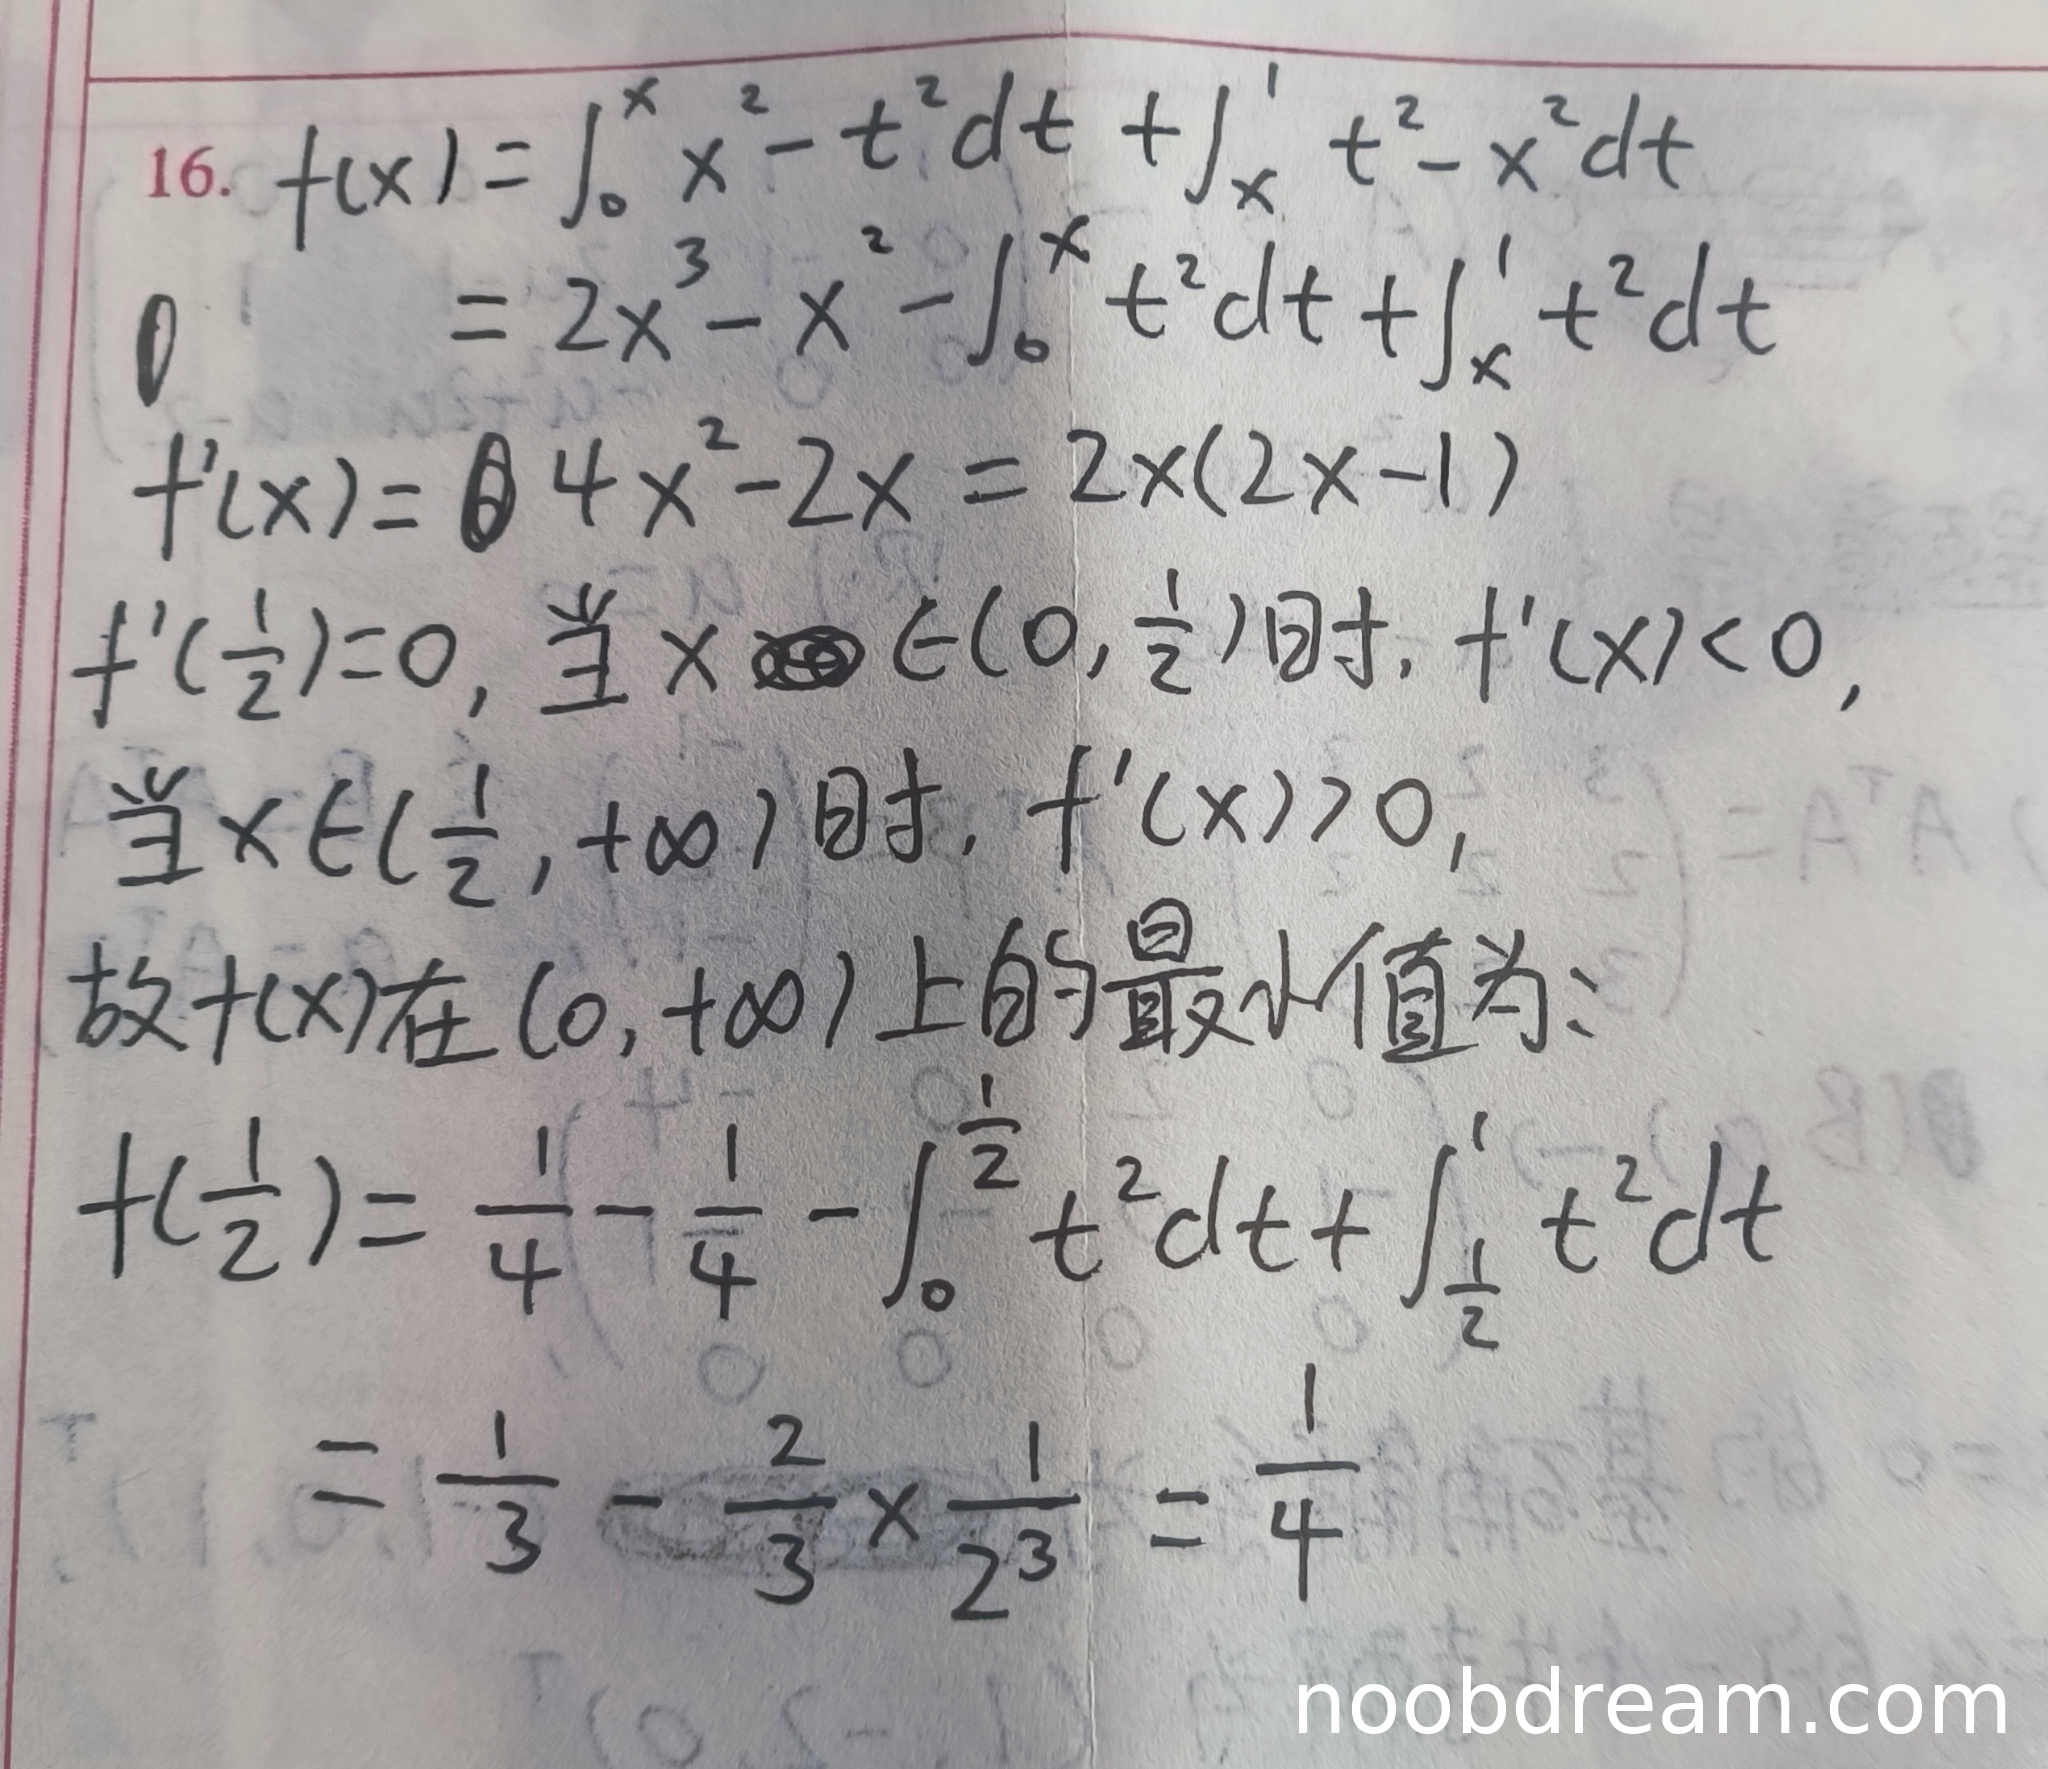 16. f(x) = ∫₀ˣ x² - t² dt + ∫ₓ¹ t² - x² dt
0 = 2x³ - x² - ∫₀ˣ t² dt + ∫ₓ¹ t² dt
f'(x) = 4x² - 2x = 2x(2x-1)
f'(1/2)=0, 当 x ∈(0, 1/2)时, f'(x)<0,
当x∈(1/2, +∞)时, f'(x)>0,
故f(x)在(0, +∞)上的最小值为:
f(1/2) = 1/4 - 1/4 - ∫₀^(1/2) t² dt + ∫_(1/2)^1 t² dt
= 1/3 - 2/3 × 1/2³ = 1/4
noobdream.com